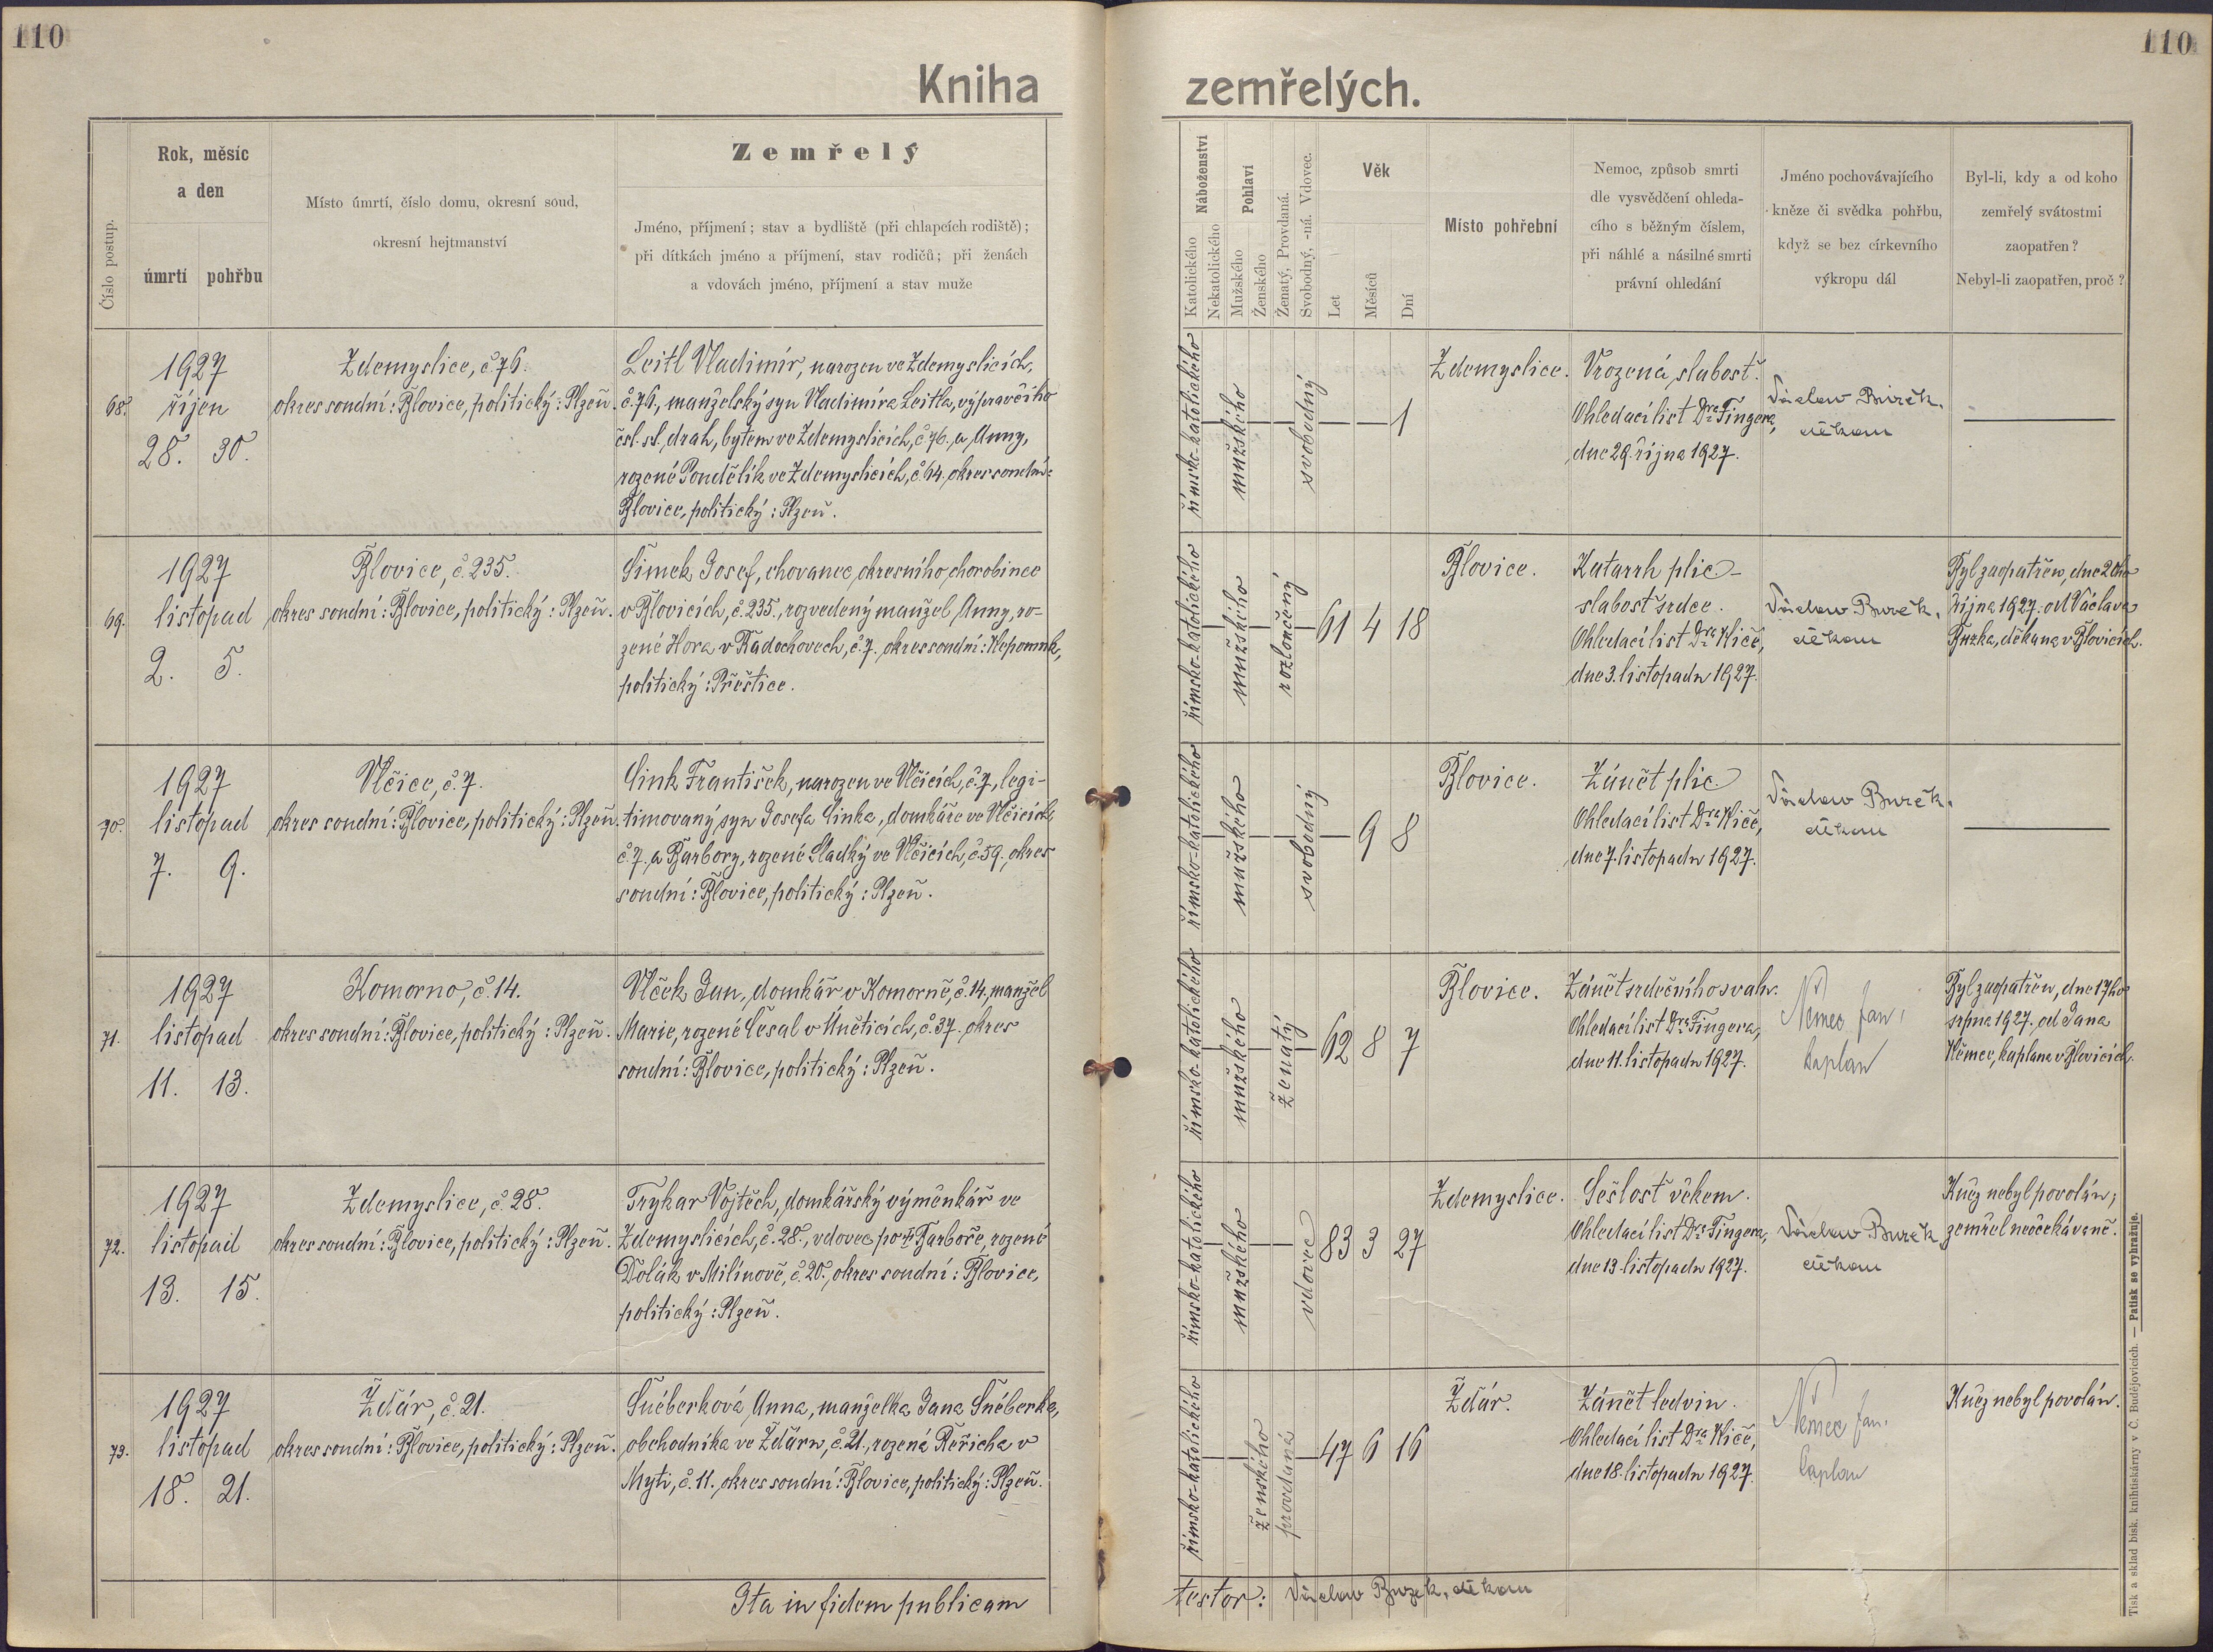 110
110
Kniha zemřelých.
Číslo postup.
Rok, měsíc
a den
úmrtí
pohřbu
Místo úmrtí, číslo domu, okresní soud,
okresní hejtmanství
Zemřelý
Jméno, příjmení; stav a bydliště (při chlapcích rodiště);
při dítkách jméno a příjmení, stav rodičů; při ženách
a vdovách jméno, příjmení a stav muže
Náboženství
Katolického
Nekatolického
Pohlaví
Mužského
Ženského
Ženatý, Provdaná.
Svobodný, -ná. Vdovec.
Věk
Let
Měsíců
Dní
Místo pohřební
Nemoc, způsob smrti
dle vysvědčení ohleda-
cího s běžným číslem,
při náhlé a násilné smrti
právní ohledání
Jméno pochovávajícího
kněze či svědka pohřbu,
když se bez církevního
výkropu dál
Byl-li, kdy a od koho
zemřelý svátostmi
zaopatřen?
Nebyl-li zaopatřen, proč?
68.
1927
říjen
28. 30.
Zdemyslice, č. 76.
okres soudní: Blovice, politický: Plzeň.
Leitl Vladimír, narozen ve Zdemyslicích,
č. 76., manželský syn Vladimíra Leitla, výpravčího
čsl. st. drah, bytem ve Zdemyslicích, č. 76. a Anny,
rozené Pondělík ve Zdemyslicích, č. 64. okres soudní:
Blovice, politický: Plzeň.
římsko-katolického
mužského
svobodný
1
Zdemyslice.
Vrozená slabost.
Ohledací list Dra Fingera,
dne 29. října 1927.
Václav Buzek,
děkan
69.
1927
listopad
2. 5.
Blovice, č. 235.
okres soudní: Blovice, politický: Plzeň.
Šimek Josef, chovanec okresního chorobince
v Blovicích, č. 235., rozvedený manžel Anny, ro-
zené Hora v Kadochovech, č. 7. okres soudní: Nepomuk,
politický: Přeštice.
římsko-katolického
mužského
rozloučený
61 4 18
Blovice.
Katarrh plic -
slabost srdce.
Ohledací list Dra Kliče,
dne 3. listopadu 1927.
Václav Buzek,
děkan
Byl zaopatřen, dne 20ho
října 1927. od Václava
Buzka, děkana v Blovicích.
70.
1927
listopad
7. 9.
Vlčice, č. 7.
okres soudní: Blovice, politický: Plzeň.
Cink František, narozen ve Vlčicích, č. 7., legi-
timovaný syn Josefa Cinka, domkáře ve Vlčicích,
č. 7. a Barbory, rozené Sladký ve Vlčicích, č. 59., okres
soudní: Blovice, politický: Plzeň.
římsko-katolického
mužského
svobodný
9 8
Blovice.
Zánět plic
Ohledací list Dra Kliče,
dne 7. listopadu 1927.
Václav Buzek,
děkan
71.
1927
listopad
11. 13.
Komorno, č. 14.
okres soudní: Blovice, politický: Plzeň.
Vlček Jan, domkář v Komorně, č. 14., manžel
Marie, rozené Česal v Úněticích, č. 37. okres
soudní: Blovice, politický: Plzeň.
římsko-katolického
mužského
ženatý
62 8 7
Blovice.
Zánět srdečního svalu.
Ohledací list Dra Fingera,
dne 11. listopadu 1927.
Němec Jan,
kaplan
Byl zaopatřen, dne 17ho
srpna 1927. od Jana
Němec, kaplana v Blovicích.
72.
1927
listopad
13. 15.
Zdemyslice, č. 28.
okres soudní: Blovice, politický: Plzeň.
Trykar Vojtěch, domkářský výměnkář ve
Zdemyslicích, č. 28., vdovec po † Barboře, rozené
Dolák v Milínově, č. 20., okres soudní: Blovice,
politický: Plzeň.
římsko-katolického
mužského
vdovec
83 3 27
Zdemyslice.
Sešlost věkem.
Ohledací list Dra Fingera,
dne 13. listopadu 1927.
Václav Buzek,
děkan
Kněz nebyl povolán;
zemřel neočekávaně.
73.
1927
listopad
18. 21.
Žďár, č. 21.
okres soudní: Blovice, politický: Plzeň.
Šnéberková Anna, manželka Jana Šnéberka,
obchodníka ve Žďáru, č. 21., rozená Řeřicha v
Myti, č. 11. okres soudní: Blovice, politický: Plzeň.
římsko-katolického
ženského
provdaná
47 6 16
Žďár.
Zánět ledvin.
Ohledací list Dra Kliče,
dne 18. listopadu 1927.
Němec Jan,
kaplan
Kněz nebyl povolán.
Ita in fidem publicam
testor: Václav Buzek, děkan
Tisk a sklad bisk. knihtiskárny v Č. Budějovicích. — Patisk se vyhražuje.